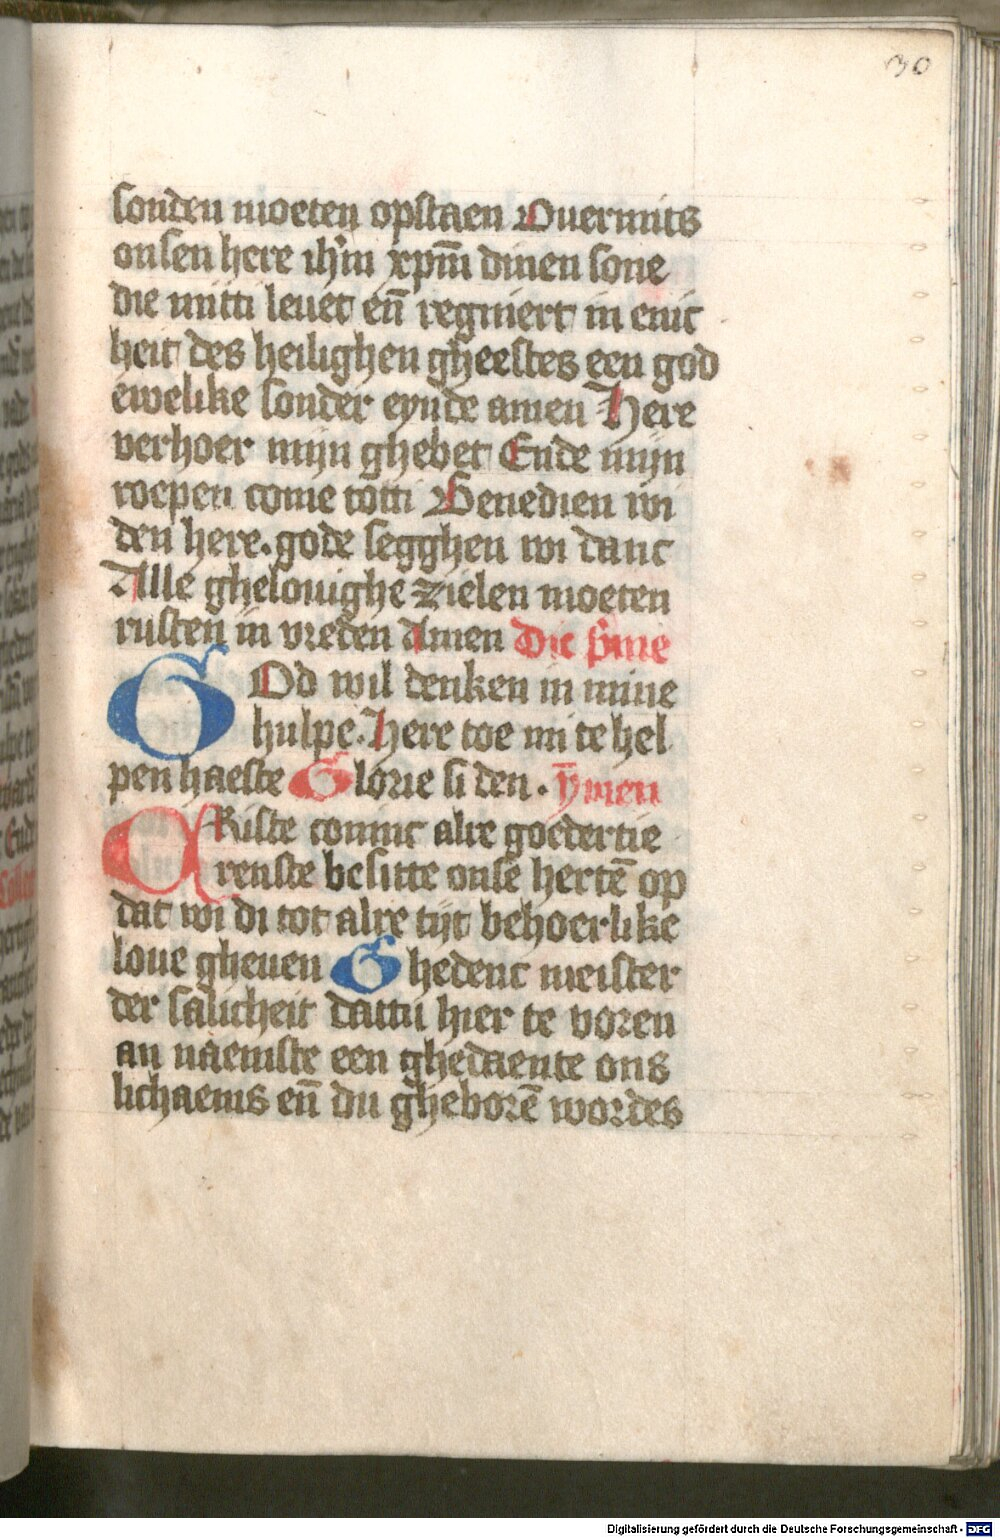 30
sonden moeten opstaen Ouermits
onsen here ihm̄ xpm̄ dinen sone
die mitti leuet en̄ regniert in enic
heit des heilighen gheestes een god
ewelike sonder eynde amen Here
verhoer mijn ghebet Ende mijn
roepen come totti Benedien wi
den here. gode segghen wi danc
Alle ghelouighe zielen moeten
rusten in vreden Amen Die p̄me
GOd wil denken in mine
hulpe. Here toe mi te hel
pen haeste Glorie si den. ȳmen
CRiste coninc alre goedertie
renste besitte onse hertē op
dat wi di tot alre tijt behoerlike
loue gheuen Ghedenc meister
der salicheit dattu hier te voren
an naemste een ghedaente ons
lichaems en̄ du gheborē wordes
Digitalisierung gefördert durch die Deutsche Forschungsgemeinschaft - DFG